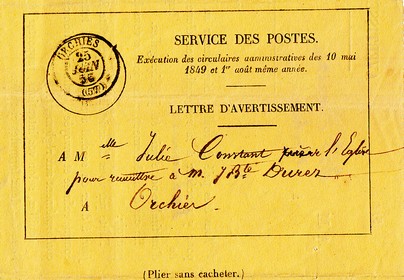 ORCHIES
25
JUIN
56
(57)
SERVICE DES POSTES.
Exécution des circulaires administratives des 10 mai
1849 et 1er août même année.
LETTRE D'AVERTISSEMENT.
A Melle Julie Constant l'Eglise
pour remettre à M. JBte Durez
A Orchies.
(Plier sans cacheter.)